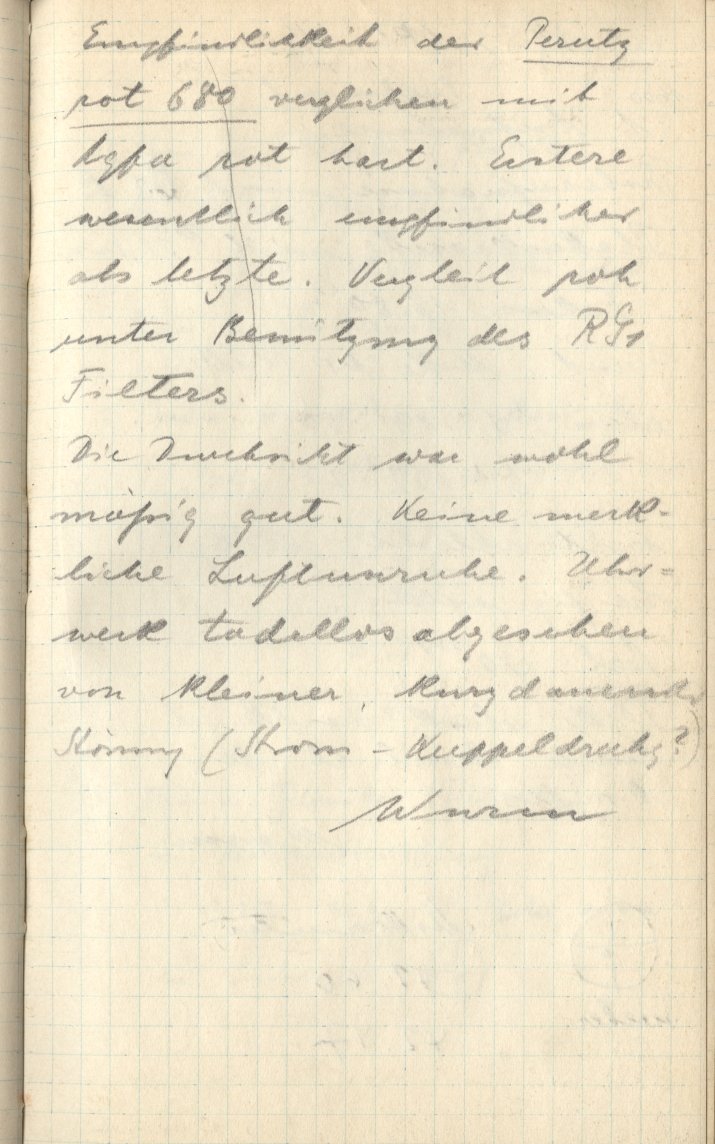 Empfindlichkeit der Perutz
rot 680 verglichen mit
Agfa rot hart. Erstere
wesentlich empfindlicher
als letzte. Vergleich
unter Benützung des RG1
Filters.
Die Durchsicht war wohl
mäßig gut. Keine merk-
liche Luftunruhe. Uhr=
werk tadellos abgesehen
von kleiner, kurzdauernder
Störung (Strom -
Wurm